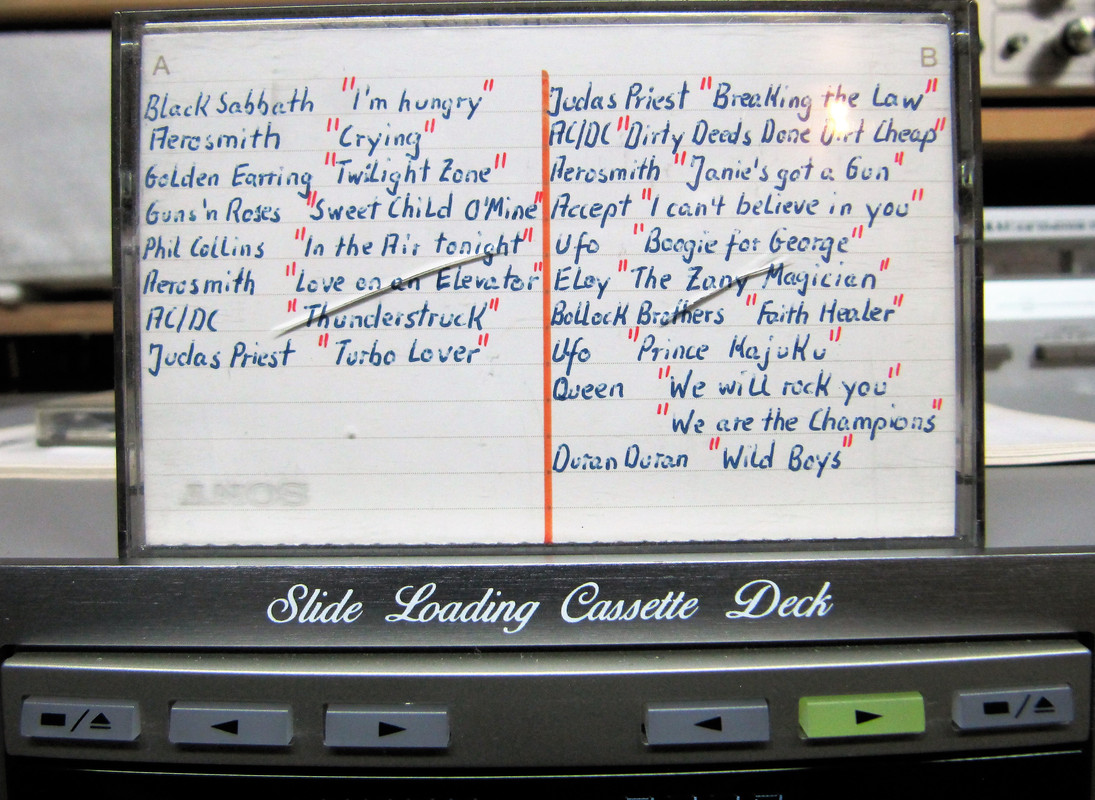 A
Black Sabbath "I'm hungry"
Aerosmith "Crying"
Golden Earring "Twilight Zone"
Guns'n Roses "Sweet Child O'Mine"
Phil Collins "In the Air tonight"
Aerosmith "Love on an Elevator"
AC/DC "Thunderstruck"
Judas Priest "Turbo Lover"
SONY
B
Judas Priest "Breaking the Law"
AC/DC "Dirty Deeds Done Dirt Cheap"
Aerosmith "Janie's got a Gun"
Accept "I can't believe in you"
Ufo "Boogie for George"
Eloy "The Zany Magician"
Bollock Brothers "Faith Healer"
Ufo "Prince Kajuku"
Queen "We will rock you"
"We are the Champions"
Duran Duran "Wild Boys"
Slide Loading Cassette Deck